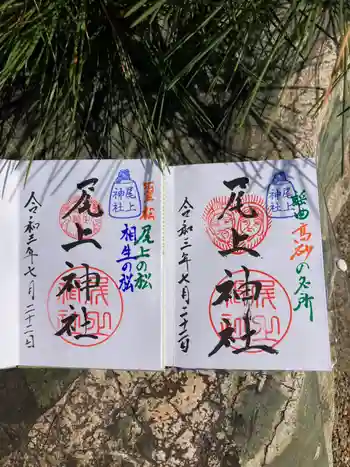 謡曲高砂の名所
尾上神社
尾上神社
令和三年七月二十二日
霊松
尾上の松
相生の松
尾上神社
尾上神社
令和三年七月二十二日